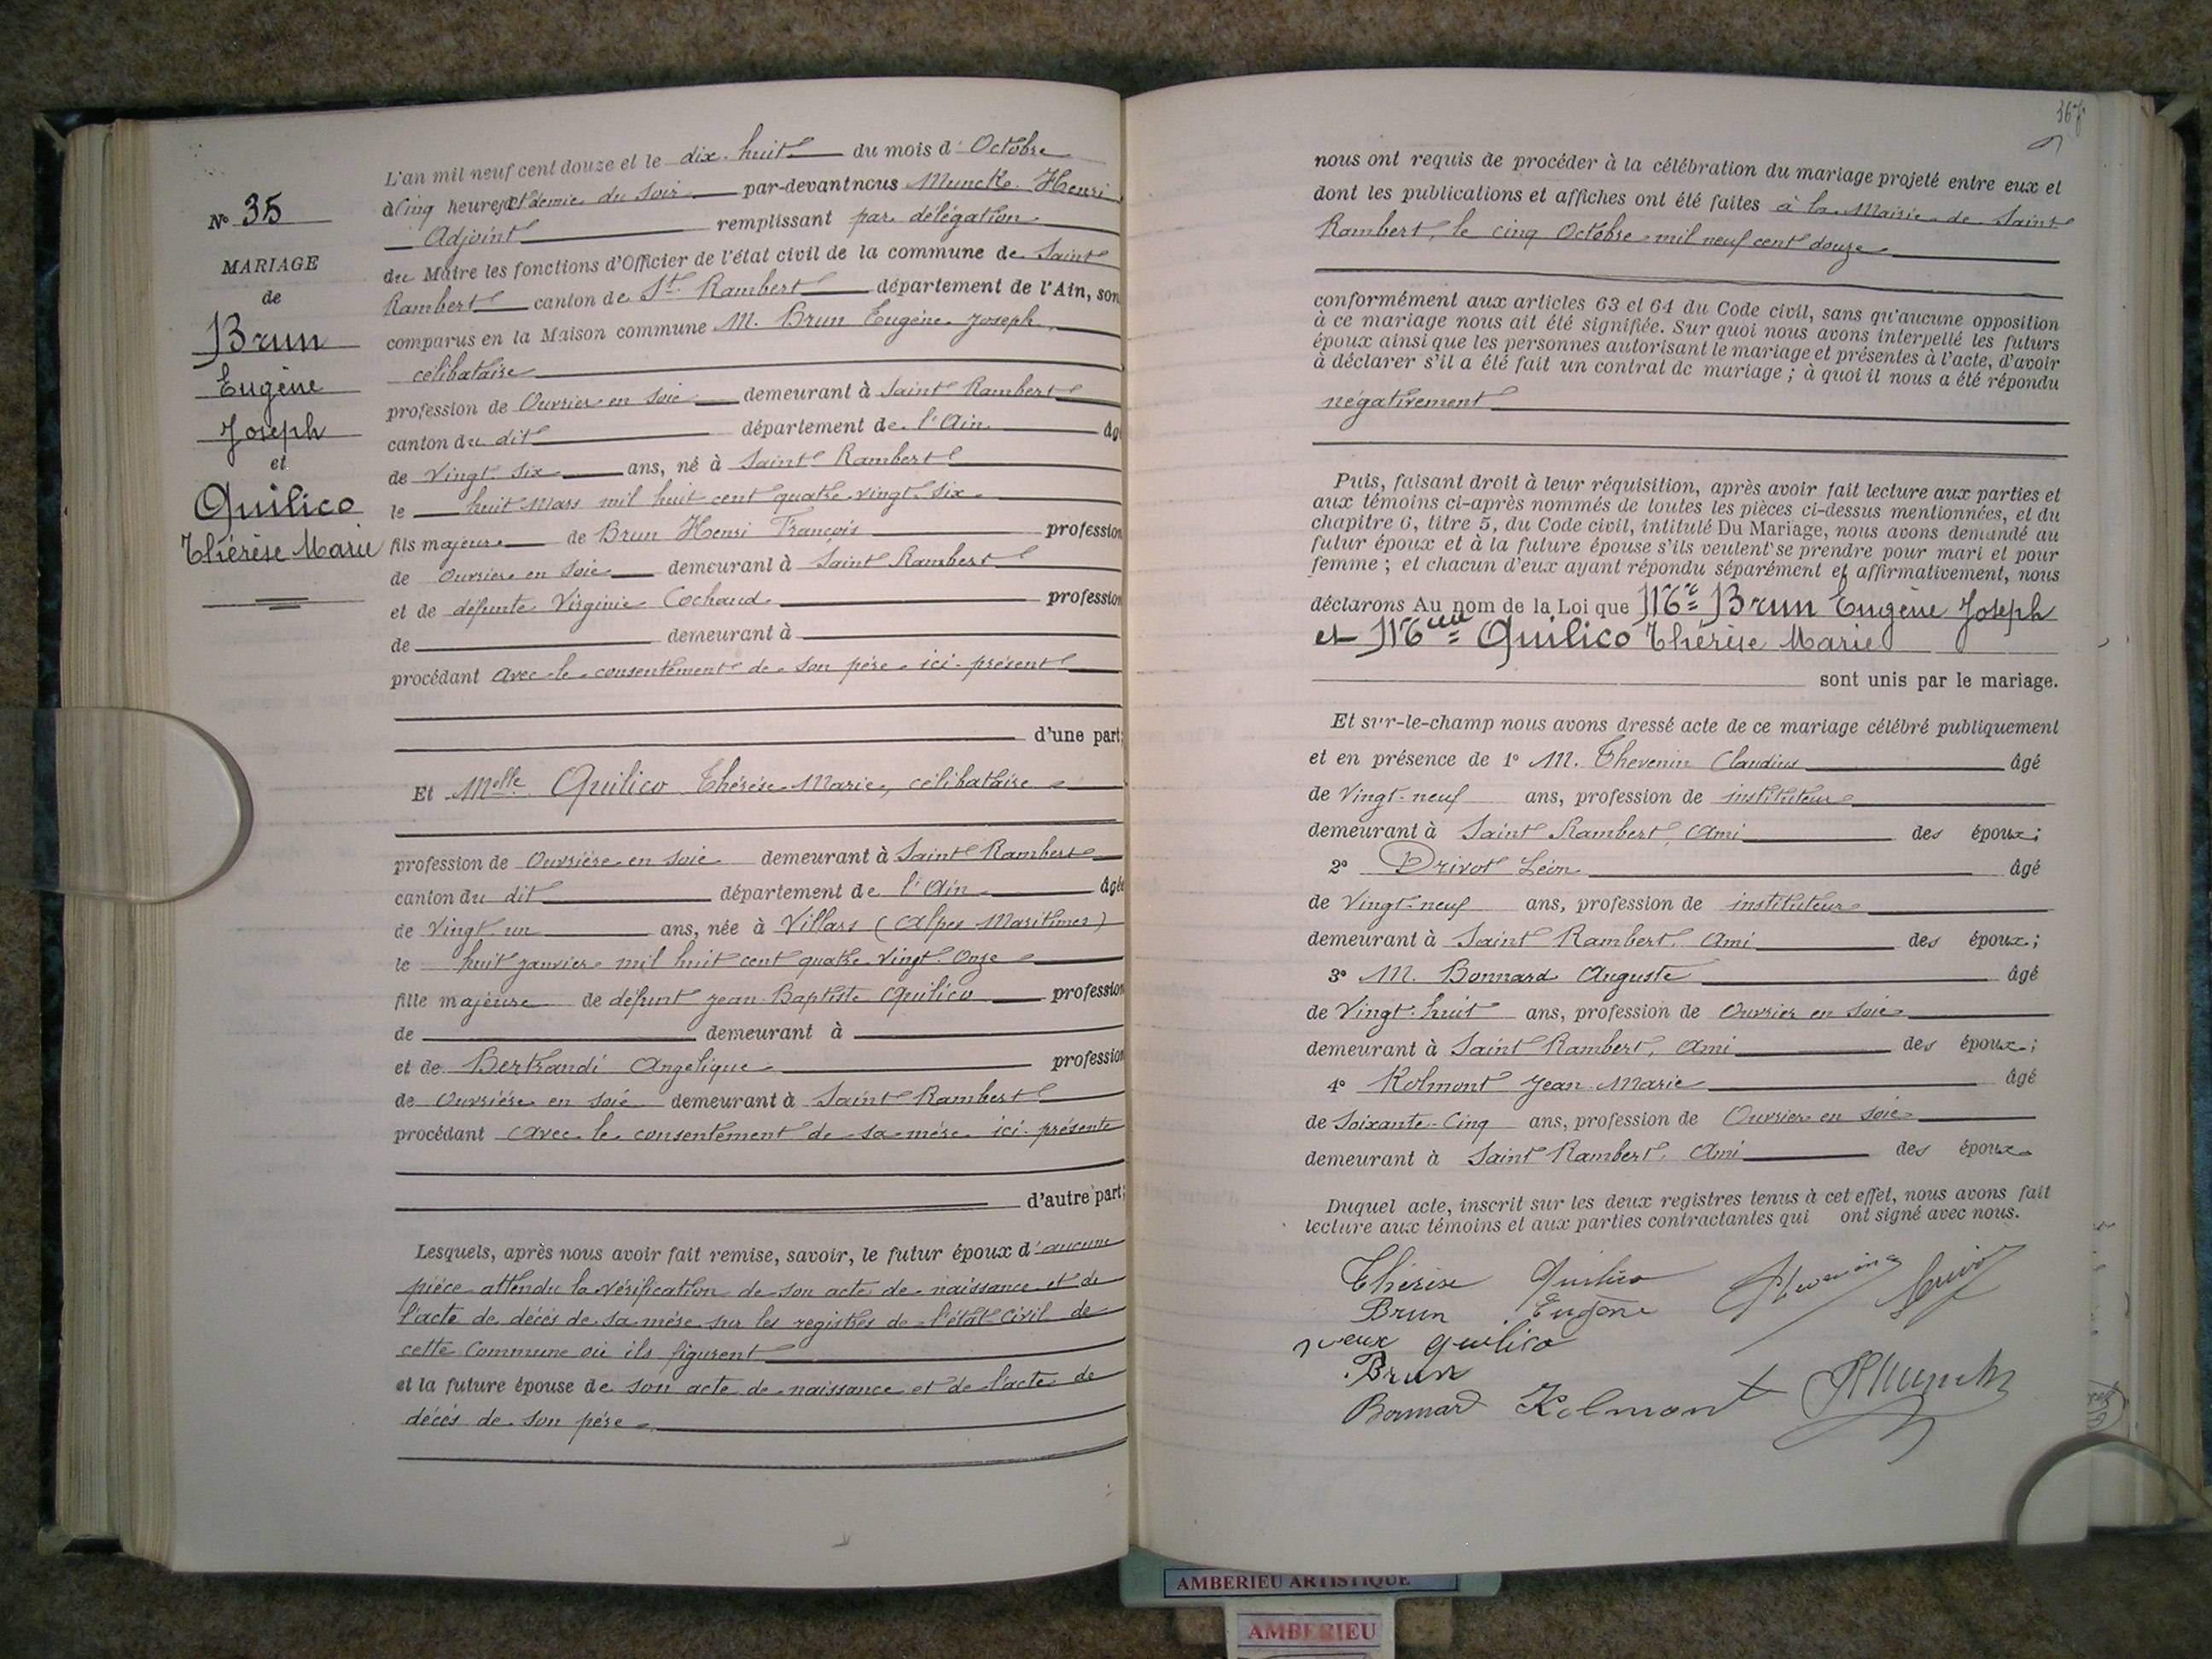 N° 35
MARIAGE
de
Brun
Eugène
Joseph
et
Quilico
Thérèse Marie
L'an mil neuf cent douze et le dix-huit du mois d'Octobre
à Cinq heures et demie du soir par-devant nous Muncke Henri
Adjoint remplissant par délégation
du Maire les fonctions d'Officier de l'état civil de la commune de Saint
Rambert canton de St. Rambert département de l'Ain, son
comparus en la Maison commune M. Brun Eugène Joseph,
célibataire
profession de Ouvrier en soie demeurant à Saint Rambert
canton du dit département de l'Ain âg
de Vingt-six ans, né à Saint Rambert
le huit Mars mil huit cent quatre-vingt-six
fils majeur de Brun Henri François profession
de Ouvrier en soie demeurant à Saint Rambert
et de défunte Virginie Cochaud profession
de demeurant à
procédant avec le consentement de son père ici présent
d'une part;
Et Melle Quilico Thérèse Marie, célibataire
profession de Ouvrière en soie demeurant à Saint Rambert
canton du dit département de l'Ain âgé
de Vingt-un ans, née à Villars (Alpes Maritimes)
le huit janvier mil huit cent quatre-vingt-onze
fille majeure de défunt Jean-Baptiste Quilico profession
de demeurant à
et de Bertrandi Angélique profession
de Ouvrière en soie demeurant à Saint Rambert
procédant avec le consentement de sa mère ici présente
d'autre part;
Lesquels, après nous avoir fait remise, savoir, le futur époux d'aucune
pièce attendu la vérification de son acte de naissance et de
l'acte de décès de sa mère sur les registres de l'état-civil de
cette Commune où ils figurent
et la future épouse de son acte de naissance et de l'acte de
décès de son père
nous ont requis de procéder à la célébration du mariage projeté entre eux et
dont les publications et affiches ont été faites à la Mairie de Saint
Rambert, le cinq Octobre mil neuf cent douze
conformément aux articles 63 et 64 du Code civil, sans qu'aucune opposition
à ce mariage nous ait été signifiée. Sur quoi nous avons interpellé les futurs
époux ainsi que les personnes autorisant le mariage et présentes à l'acte, d'avoir
à déclarer s'il a été fait un contrat de mariage ; à quoi il nous a été répondu
négativement
Puis, faisant droit à leur réquisition, après avoir fait lecture aux parties et
aux témoins ci-après nommés de toutes les pièces ci-dessus mentionnées, et du
chapitre 6, titre 5, du Code civil, intitulé Du Mariage, nous avons demandé au
futur époux et à la future épouse s'ils veulent se prendre pour mari et pour
femme ; et chacun d'eux ayant répondu séparément et affirmativement, nous
déclarons Au nom de la Loi que Mr Brun Eugène Joseph
et Melle Quilico Thérèse Marie
sont unis par le mariage.
Et sur-le-champ nous avons dressé acte de ce mariage célébré publiquement
et en présence de 1° M. Thevenin Claudius âgé
de Vingt-neuf ans, profession de instituteur
demeurant à Saint Rambert, Ami des époux;
2° Drivot Léon âgé
de Vingt-neuf ans, profession de instituteur
demeurant à Saint Rambert, Ami des époux;
3° M. Bonnard Auguste âgé
de Vingt-huit ans, profession de Ouvrier en soie
demeurant à Saint Rambert, Ami des époux;
4° Kolmont Jean-Marie âgé
de Soixante-Cinq ans, profession de Ouvrier en soie
demeurant à Saint Rambert, Ami des époux
Duquel acte, inscrit sur les deux registres tenus à cet effet, nous avons fait
lecture aux témoins et aux parties contractantes qui ont signé avec nous.
Thérèse Quilico
Brun Eugène
veuve quilico
Brun
Bonnard Kolmont HMunck
AMBERIEU ARTISTIQUE
AMBERIEU